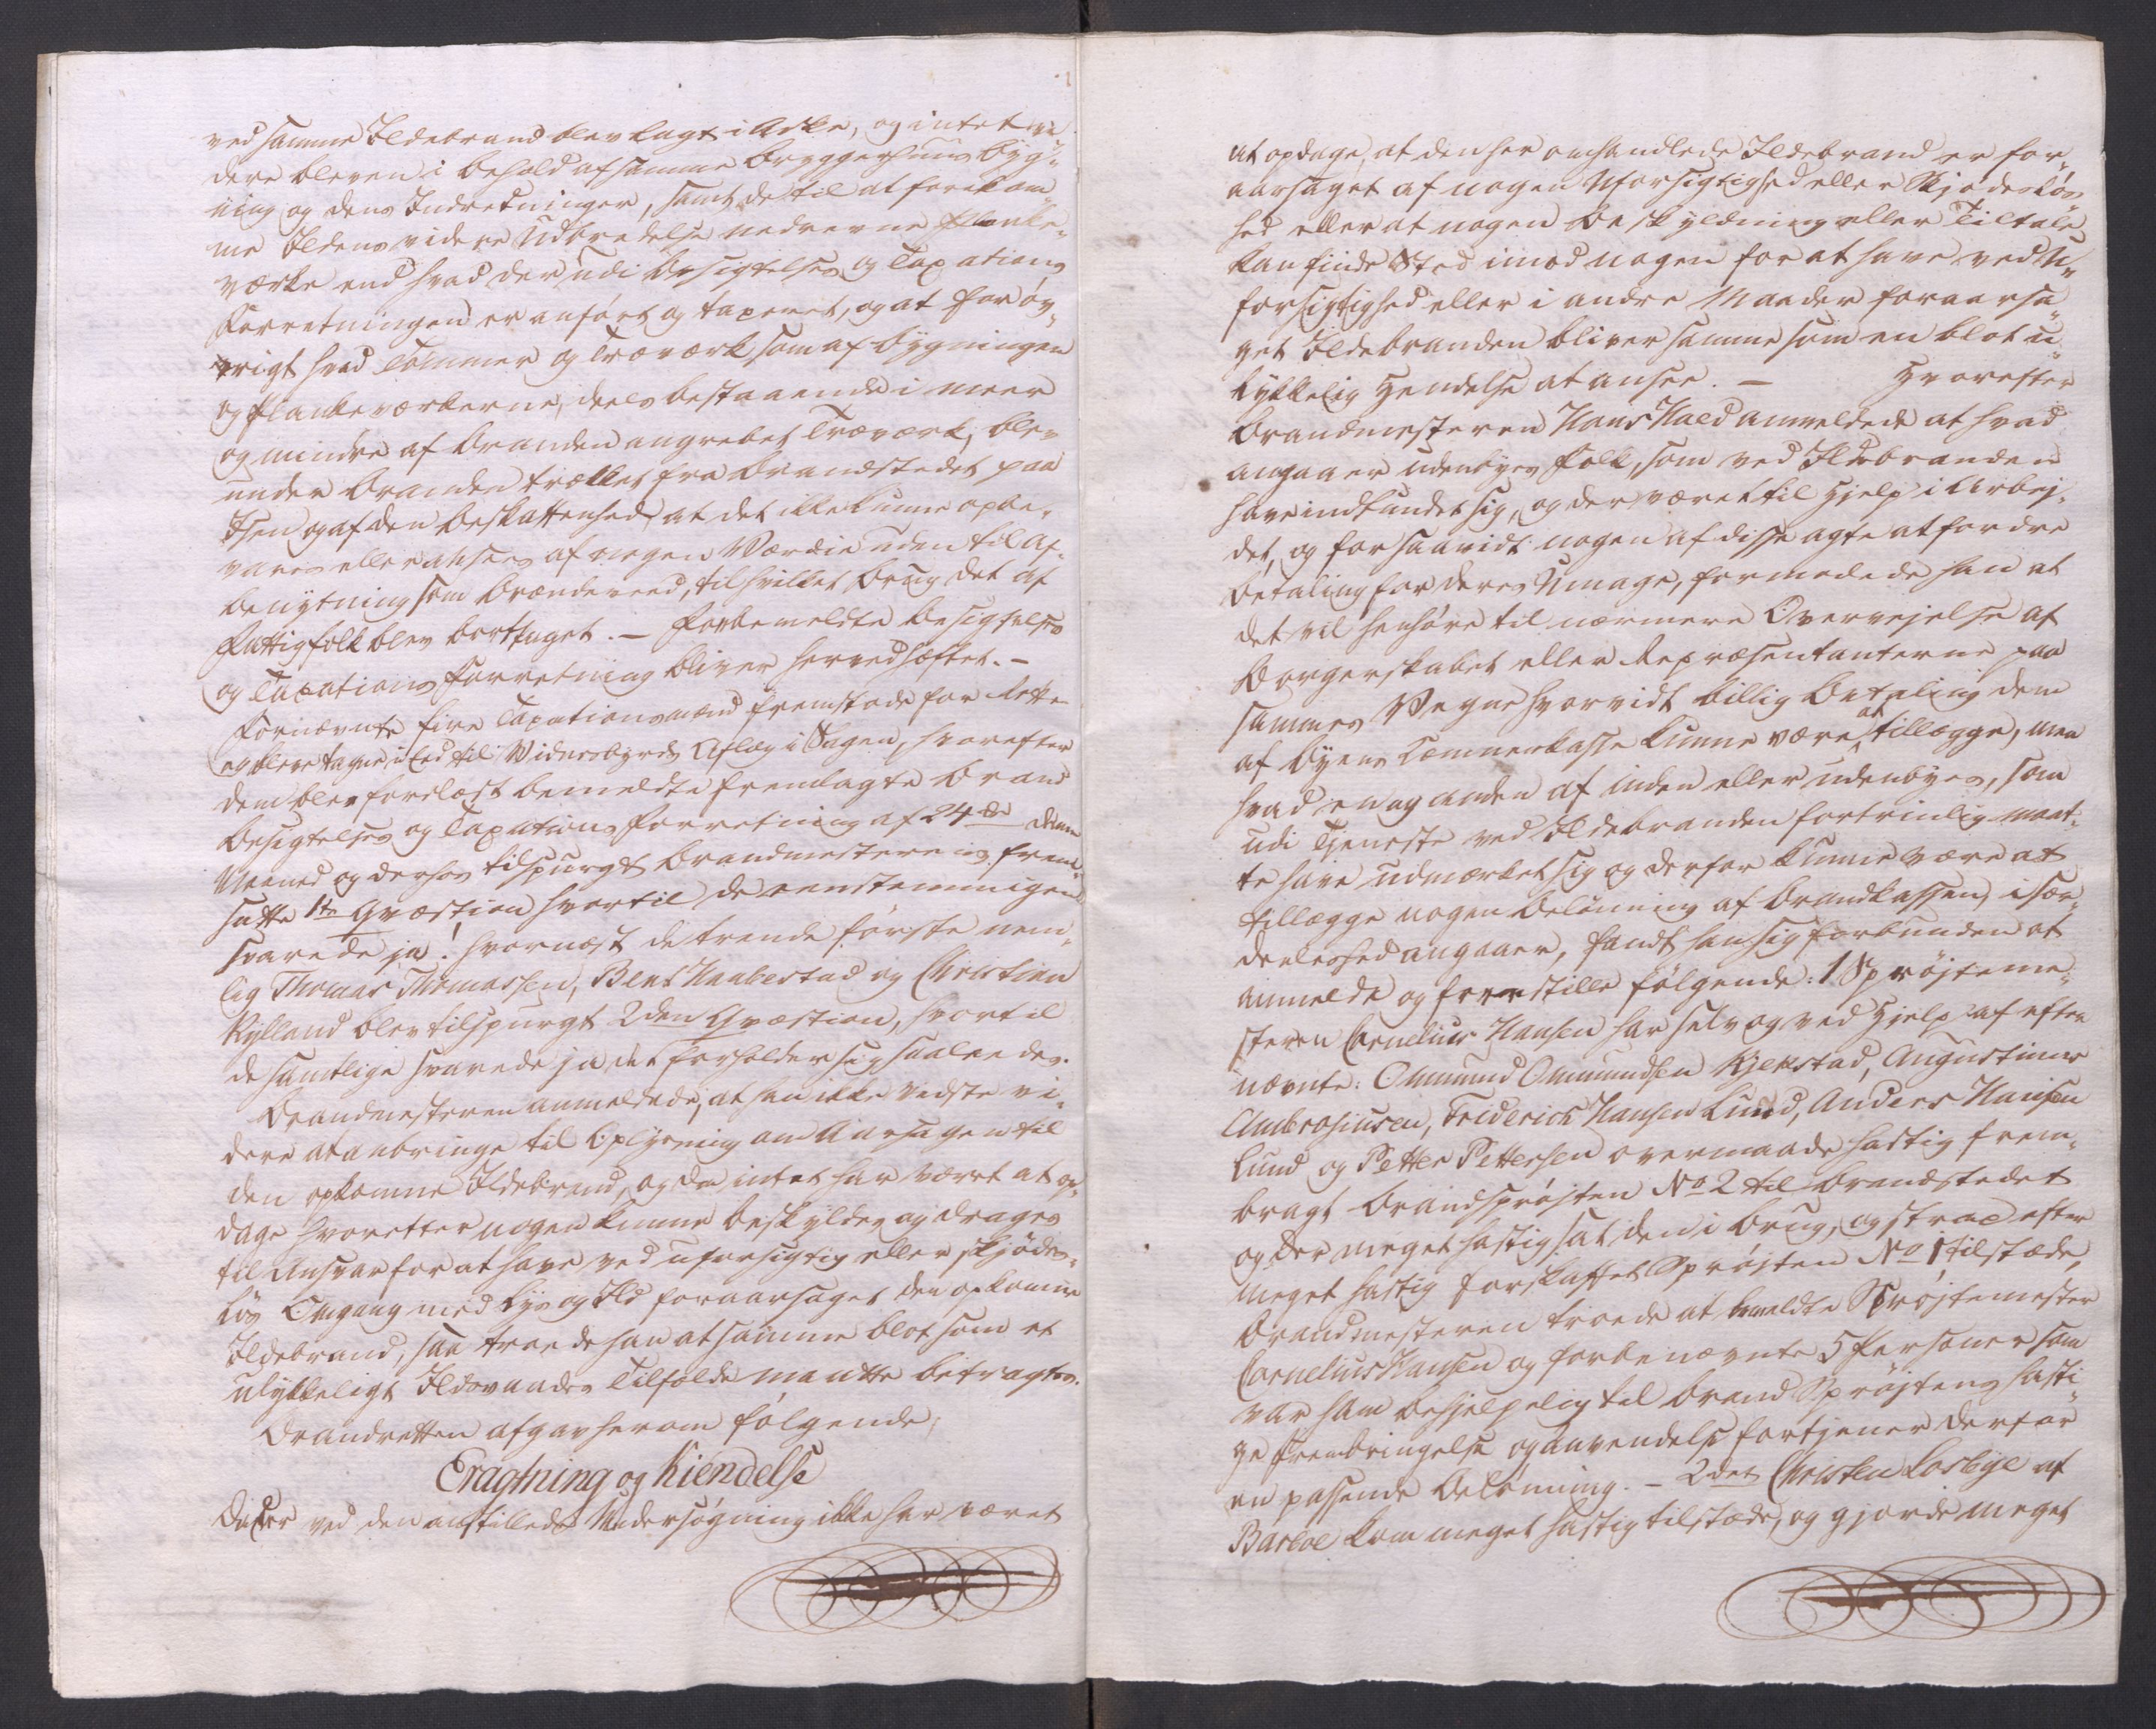 ved samme Ildebrand blev lagt i Aske, og intet vi
dere bleven i behold af samme Bryggerhuus Byg¬
ning og dens Indretninger, samt de til at forekom¬
me Ildens videre Udbredelse nedrevne Planke¬
værke end hvad der udi Besigtelses og Taxations
Forretningen er anført og taxeret, og at for øv¬
rigt hvad Tømmer og Træværk, som af Bygningen
og Plankeværkerne, deels bestaaende i meer
og mindre af Branden angrebet Træværk, blev
under Branden trækket fra Brandstedet paa
Isen og af den Beskaffenhed at det ikke kunne opbe¬
vares eller ansees af nogen Værdie uden til Af¬
benytning som Brændeveed, til hvilket Brug det af
Fattigfolk blev borttaget. — Forbemeldte Besigtelses
og Taxations Forretning bliver hervedhæftet. —
Fornævnte fire Taxationsmænd fremstode for Rette
og bleve tagne i Eed til Vidnesbyrds Aflæg i Sagen, hvorefter
dem blev forelæst bemeldte fremlagte Brand
Besigtelses og Taxations Forretning af 24de denne
Maaned og derhos tilspurgt Brandmesterens frem¬
satte 1te Qvæstion hvortil de eenstemmigen
svarede ja! hvornæst de trende første nem¬
lig Thomas Thomassen, Bent Haabestad og Christian
Kylland blev tilspurgt 2den Qvæstion, hvortil
de samtlige svarede ja det forholder sig saaledes.
Brandmesteren anmeldede, at han ikke vidste vi¬
dere at anbringe til Oplysning om Aarsagen til
den opkomne Ildebrand, og da intet har været at op¬
dage hvorefter nogen kunne beskyldes og drages
til Ansvar for at have ved uforsigtig eller skjødes¬
løs Omgang med Lys og Ild foraarsaget den opkomne
Ildebrand, saa troede han at samme blot som et
ulykkeligt Ildsvaades Tilfælde maatte betragtes.
Brandretten afgav herom følgende,
Eragtning og Kiendelse
Da der ved den anstillede Undersøgning ikke har været
at opdage, at den her omhandlede Ildebrand er for¬
aarsaget af nogen Uforsigtighed eller Skjødesløs¬
hed eller at nogen Beskyldning eller Tiltale
kan finde Sted imod nogen for at have ved U¬
forsigtighed eller i andre Maader foraarsa¬
get Ildebranden bliver samme som en blot u¬
lykkelig Hendelse at ansee. — Hvorefter
Brandmesteren Hans Hald anmeldede at hvad
angaaer udenbyes Folk, som ved Ildebranden
have indfundet sig, og der været til Hjelp i Arbej¬
det, og forsaavidt nogen af disse agte at fordre
Betaling for deres Umage, formodede han at
det vil henhøre til nærmere Overvejelse af
Borgerskabet eller Repræsentanterne paa
sammes Vegne hvorvidt billig Betaling dem
af Byens Cæmnerkasse kunne være at tillægge, men
hvad en og anden af inden eller udenbyes, som
udi Tjeneste ved Ildebranden fortrinlig maat¬
te have udmærket sig og derfor kunne være at
tillægge nogen Belønning af Brandkassen, især¬
deleshed angaaer, fandt han sig forbunden at
anmelde og forestille følgende: 1 Sprøjteme¬
steren Cornelius Hansen har selv og ved Hjelp af efter
nævnte: Ommund Ommundsen Kjekstad, Augustinus
Ambrosiusen, Friderich Hansen Lund, Anders Hansen
Lund og Petter Pettersen overmaade hastig frem¬
bragt Brandsprøjten No 2 til Brandstedet
og der meget hastig sat den i Brug, og strax efter
meget hastig forskaffet Sprøjten No 1 tilstæde,
Brandmesteren troede at bemeldte Sprøjtemester
Cornelius Hansen og forbenævnte 5 Personer som
var ham behjelpelig til Brand Sprøjtens hasti¬
ge Frembringelse og anvendelse fortjener derfor
en passende Belønning. — 2det Christen Losbye af
Barboe kom meget hastig tilstæde, og gjorde meget